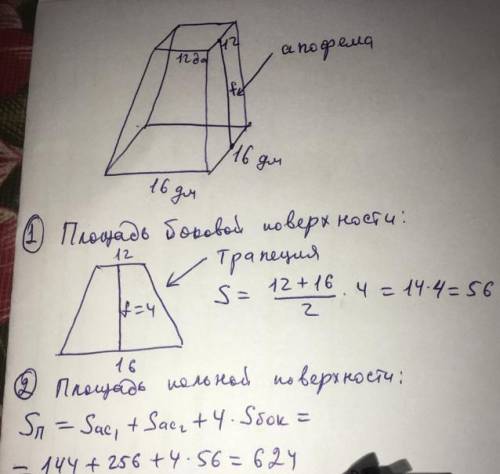 12
12дм
апофема
f
16 дм
16 дм
① Площадь боковой поверхности:
12
трапеция
f=4
S = (12+16)/2 · 4 = 14·4 = 56
16
② Площадь полной поверхности:
Sп = Sос₁ + Sос₂ + 4 · Sбок =
= 144 + 256 + 4 · 56 = 624